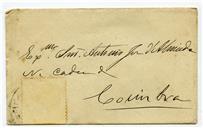 Ex.mo Snr. Antonio J. d'Almeida
Na cadea d
Coimbra